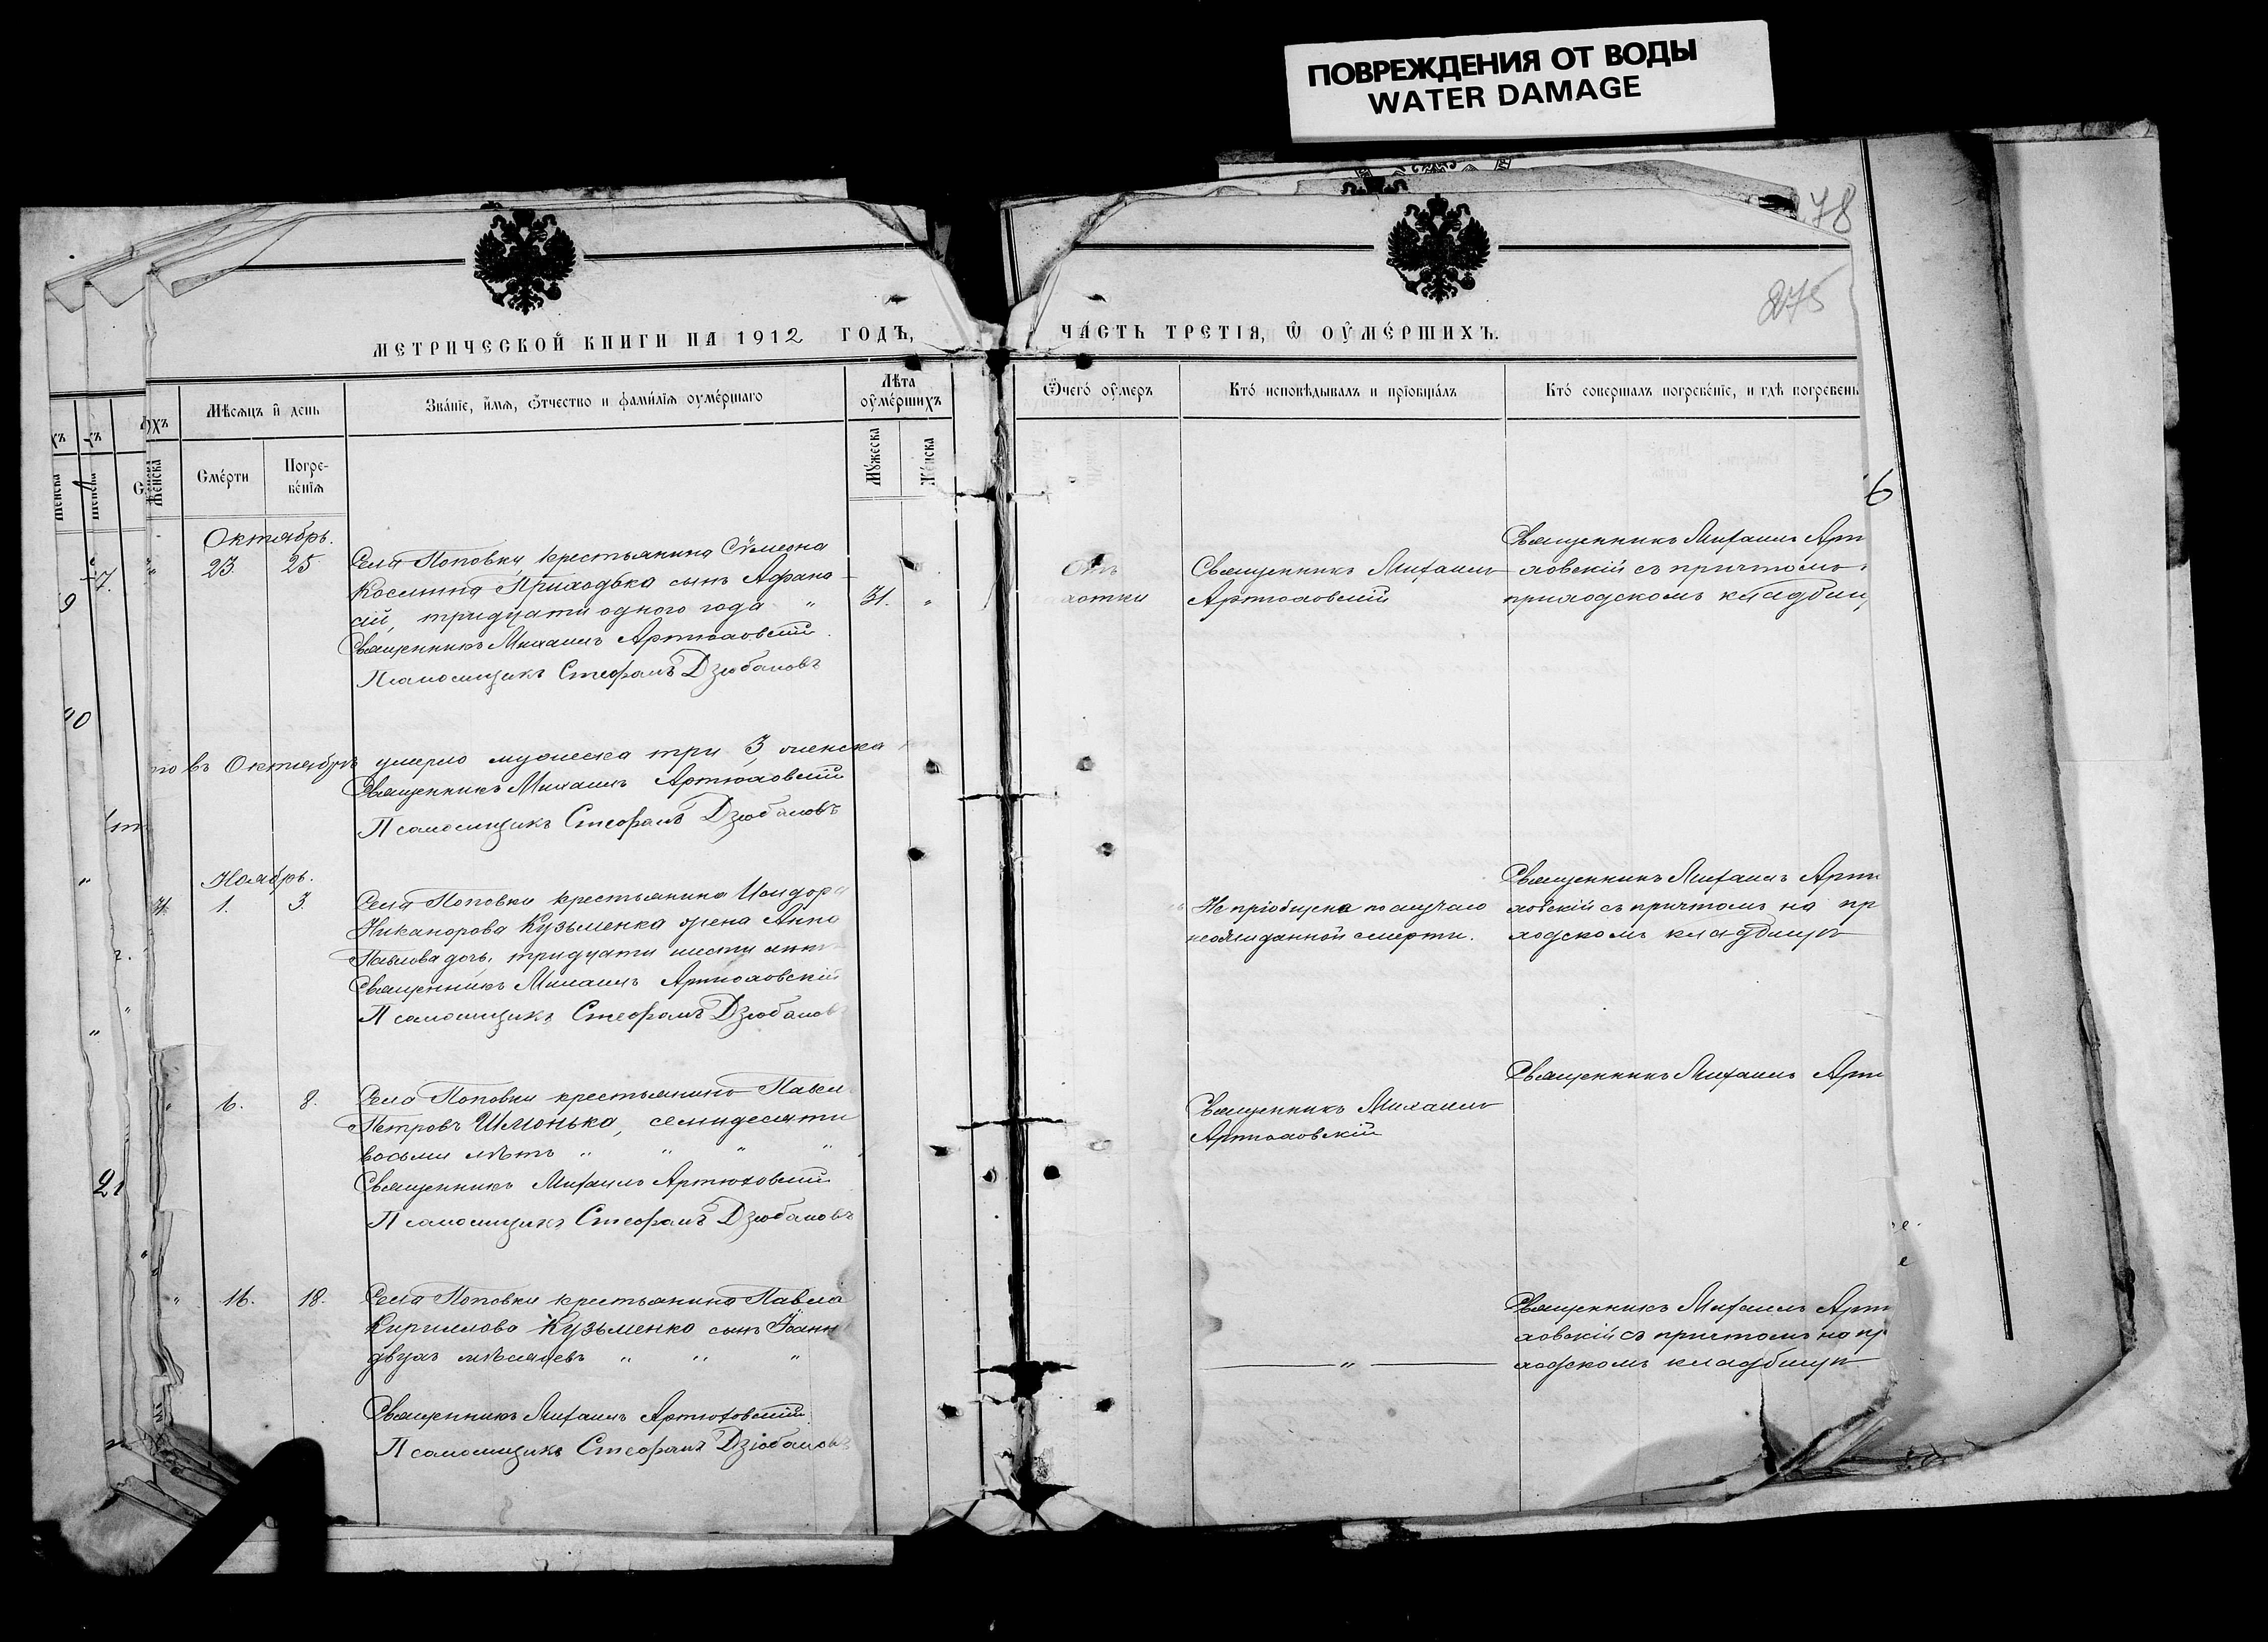 ПОВРЕЖДЕНИЯ ОТ ВОДЫ
WATER DAMAGE
78
275
МЕТРИЧЕСКОЙ КНИГИ НА 1912 ГОДЪ,
ЧАСТЬ ТРЕТІЯ, Ѿ ОУМЕРШИХЪ.
Мѣсяцъ и день
Званіе, имя, отчество и фамилія оумершаго
Лѣта оумершихъ
Смерти
Погребенія
Мужеска
Женска
Октябрь.
23. 25
Села Поповки, крестьянина Сѵмеона
Косьмина Приходька сынъ Афана-
сій, тридцати одного года " 31. "
Священникъ Михаилъ Артюховскій.
Псаломщикъ Стефанъ Дзюбановъ
въ Октябрѣ умерло мужеска три 3, женска
Священникъ Михаилъ Артюховскій
Псаломщикъ Стефанъ Дзюбановъ
Ноябрь.
1. 3.
Села Поповки крестьянина Исидора
Никанорова Кузьменка жена Анна
Павлова дочь, тридцати шести лѣтъ
Священникъ Михаилъ Артюховскій
Псаломщикъ Стефанъ Дзюбановъ
6. 8.
Села Поповки крестьянинъ Павел
Петровъ Шмонька, семидесяти
восьми лѣтъ " " " "
Священникъ Михаилъ Артюховскій
Псаломщикъ Стефанъ Дзюбановъ
16. 18.
Села Поповки крестьянина Павла
Кириллова Кузьменко сынъ Іоанн
двухъ мѣсяцевъ " " "
Священникъ Михаилъ Артюховскій
Псаломщикъ Стефанъ Дзюбановъ
Ѿчего оумеръ
Кто исповѣдывалъ и пріобщалъ
Кто совершалъ погребеніе, и гдѣ погребены
6
Отъ
Священникъ Михаилъ
Артюховскій
Священникъ Михаилъ Арт
ховскій съ причтомъ
приходскомъ кладбищ
Не пріобщена по случаю
неожиданной смерти.
Священникъ Михаилъ Артю
ховскій съ причтомъ на пр
ходскомъ кладбищѣ
Священникъ Михаилъ
Артюховскій
Священникъ Михаилъ Артю
"
Священникъ Михаилъ Арт
ховскій съ причтомъ на пр
ходскомъ кладбищѣ